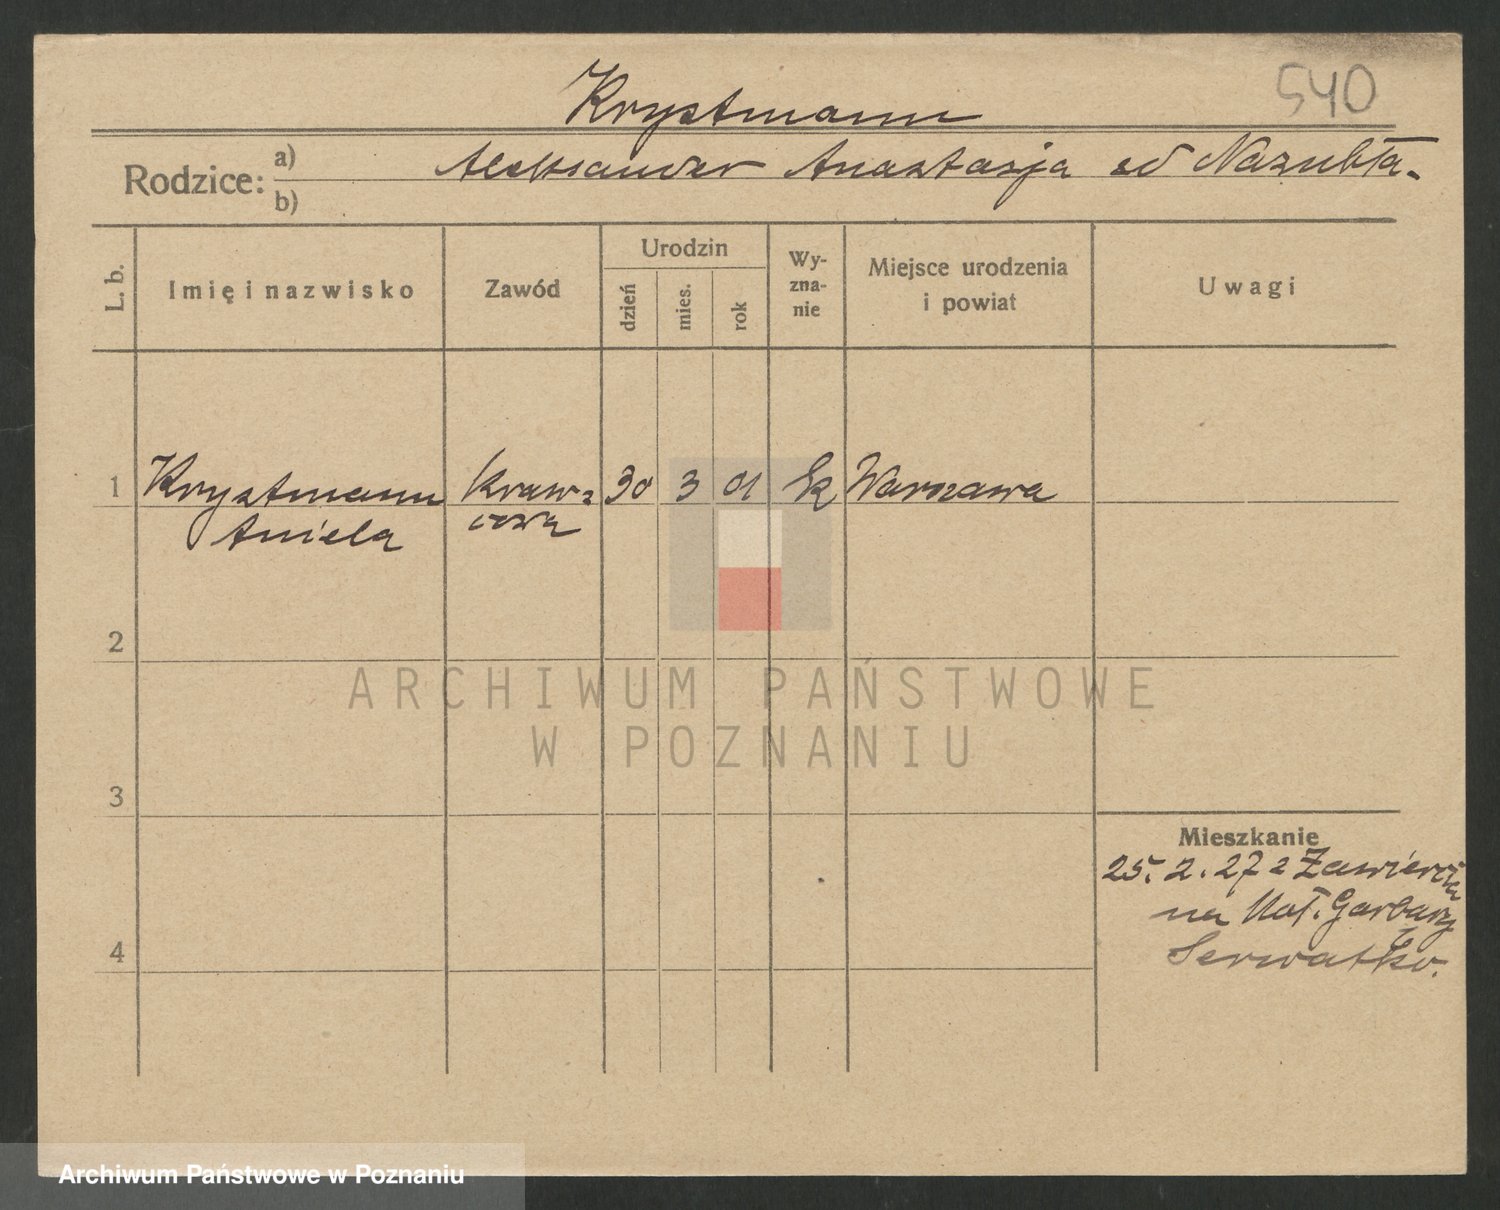 540
Krystmann
Rodzice: a) Aleksander Anastasja
b)
L. b. Imię i nazwisko Zawód Urodzin dzień mies. rok Wy-zna-nie Miejsce urodzenia i powiat Uwagi
1 Krystmann Kraw- 30 3 01 Warszawa
Aniela cowa
2
3
4
Mieszkanie
25. 2. 27 z Zawiercia
na Garbary
ARCHIWUM PAŃSTWOWE
W POZNANIU
Archiwum Państwowe w Poznaniu